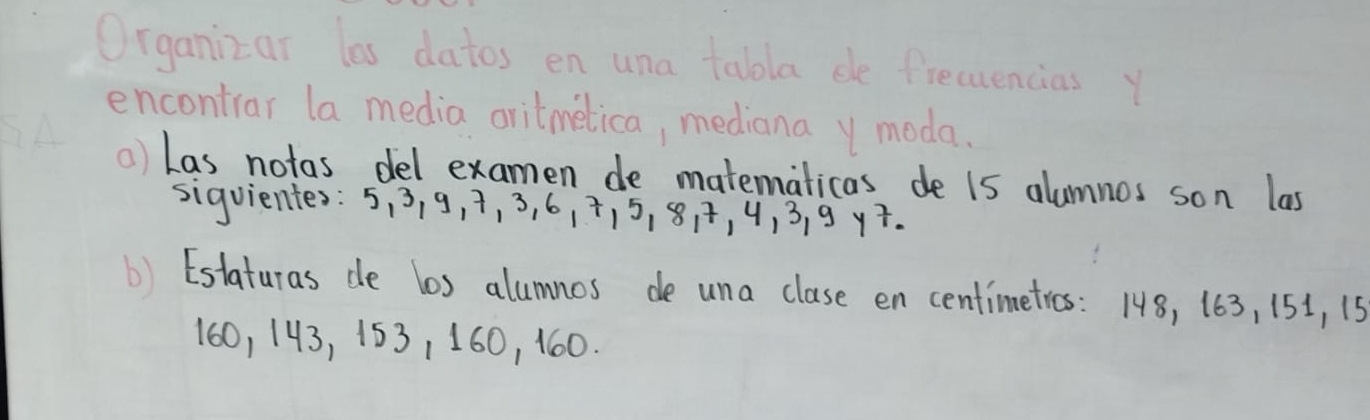 Organizar los datos en una tabla de frecuencias y
encontrar la media aritmética, mediana y moda.
a) Las notas del examen de matemáticas de 15 alumnos son las
siguientes: 5, 3, 9, 7, 3, 6, 7, 5, 8, 7, 4, 3, 9 y 7.
b) Estaturas de los alumnos de una clase en centímetros: 148, 163, 151, 15
160, 143, 153, 160, 160.